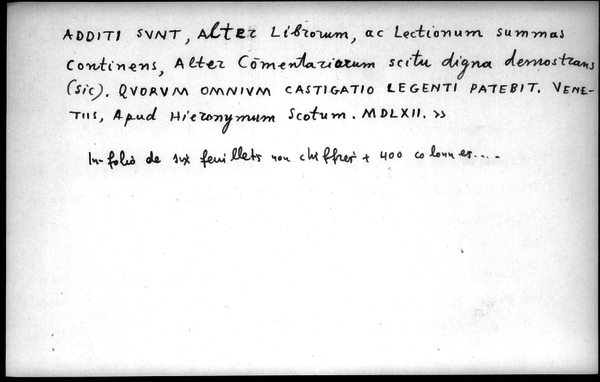 ADDITI SVNT, Alter Librorum, ac Lectionum summas
continens, Alter Cōmentariorum scitu digna demostrans
(sic). QVORVM OMNIVM CASTIGATIO LEGENTI PATEBIT. VENE-
TIIS, Apud Hieronymum Scotum. MDLXII. »
In-folio de six feuillets non chiffrés + 400 colonnes....